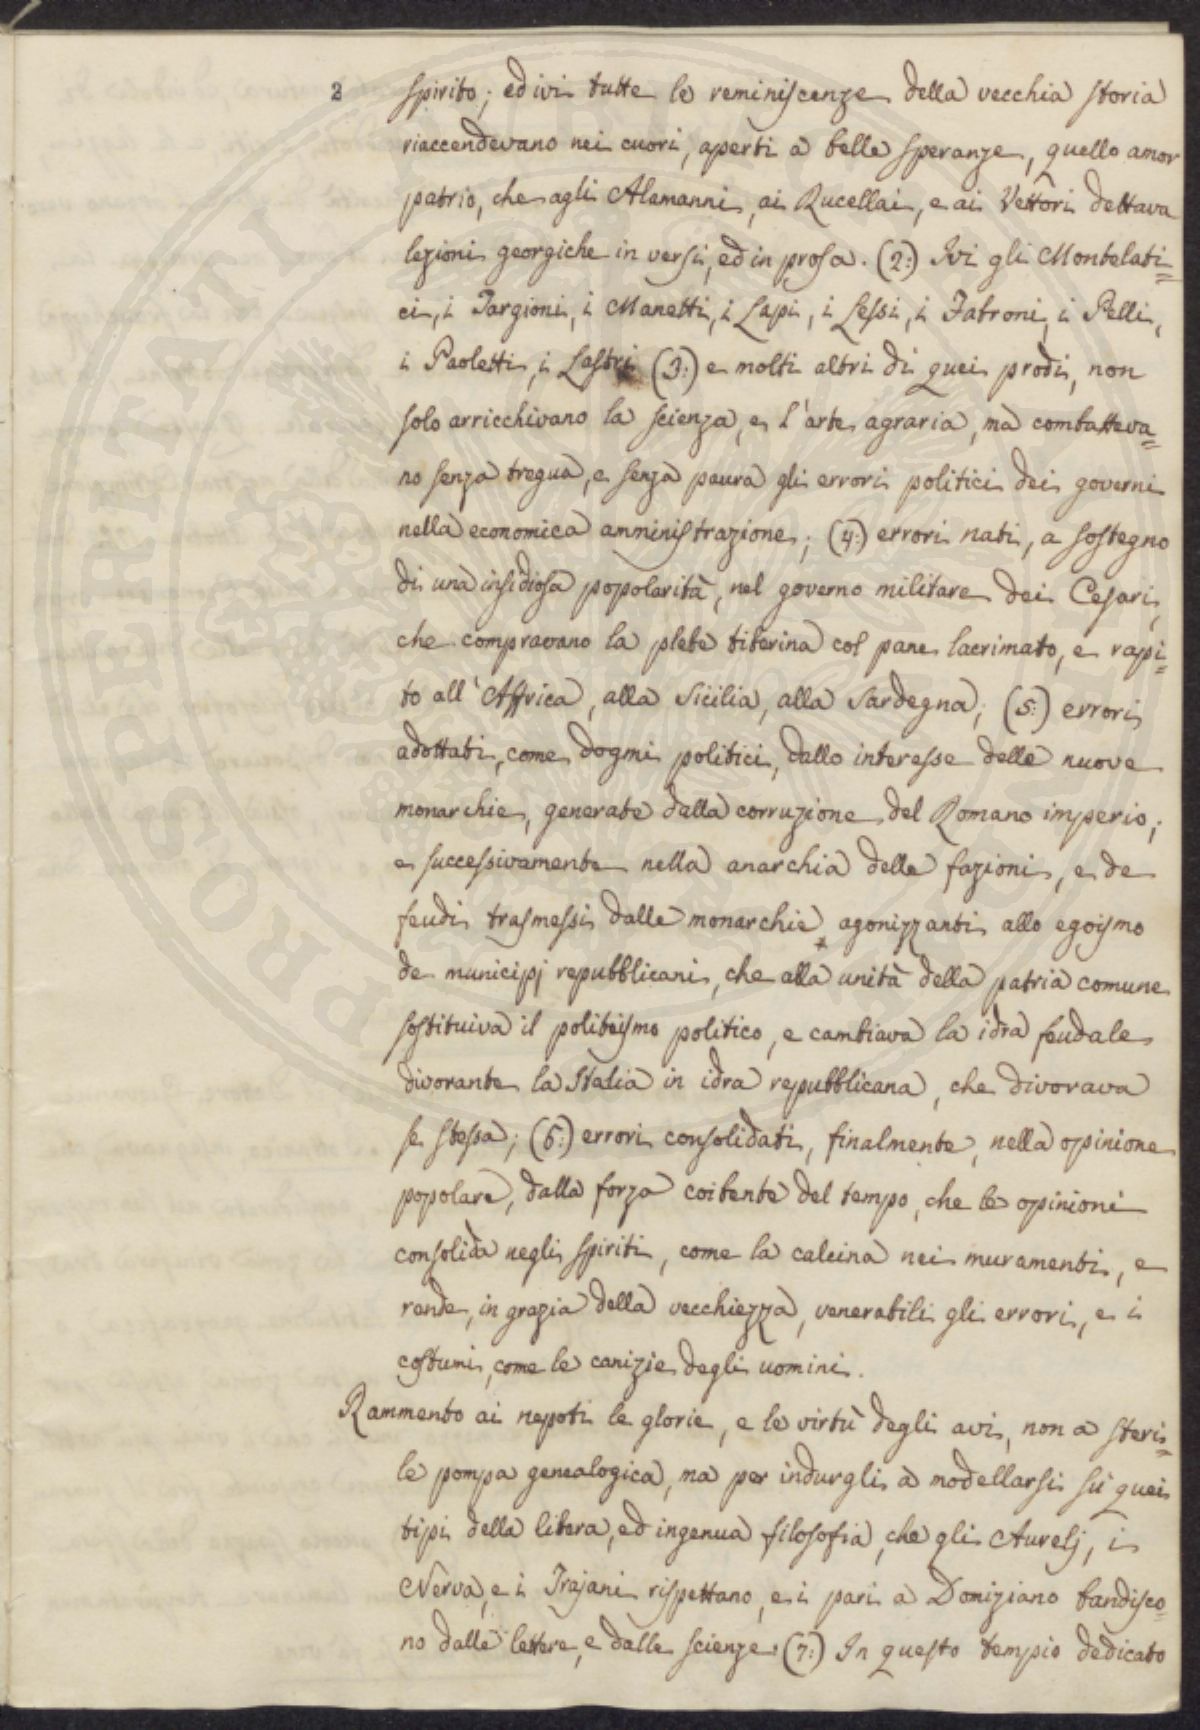 2
spirito; ed ivi tutte le reminiscenze della vecchia storia
riaccendevano nei cuori, aperti a belle speranze, quello amor
patrio, che agli Alamanni, ai Rucellai, e ai Vettori dettava
lezioni georgiche in versi, ed in prosa. (2:) Ivi gli Montelati=
ci, i Targioni, i Manetti, i Lapi, i Lessi, i Fabroni, i Pelli,
i Paoletti, i Lastri (3:) e molti altri di quei prodi, non
solo arricchivano la scienza, e l'arte agraria, ma combatteva=
no senza tregua, e senza paura gli errori politici dei governi
nella economica amministrazione; (4:) errori nati, a sostegno
di una insidiosa popolarità, nel governo militare dei Cesari,
che compravano la plebe tiberina col pane lacrimato, e rapi=
to all'Affrica, alla Sicilia, alla Sardegna; (5:) errori
adottati, come dogmi politici, dallo interesse delle nuove
monarchie, generate dalla corruzione del Romano imperio;
e successivamente nella anarchia delle fazioni, e de
feudi trasmessi dalle monarchie agonizzanti allo egoismo
de municipj repubblicani, che alla unità della patria comune
sostituiva il politeismo politico, e cambiava la idra feudale
divorante la Italia in idra repubblicana, che divorava
se stessa; (6:) errori consolidati, finalmente, nella opinione
popolare, dalla forza coibente del tempo, che le opinioni
consolida negli spiriti, come la calcina nei muramenti, e
rende, in grazia della vecchiezza, venerabili gli errori, e i
costumi, come le canizie degli uomini.
Rammento ai nepoti le glorie, e le virtù degli avi, non a steri=
le pompa genealogica, ma per indurgli a modellarsi su quei
tipi della libera, ed ingenua filosofia, che gli Aurelj, i
Nerva, e i Trajani rispettano, e i pari a Domiziano bandisco=
no dalle lettere, e dalle scienze. (7:) In questo tempio dedicato
PROSPERITATI PUBLICAE AUGENDAE